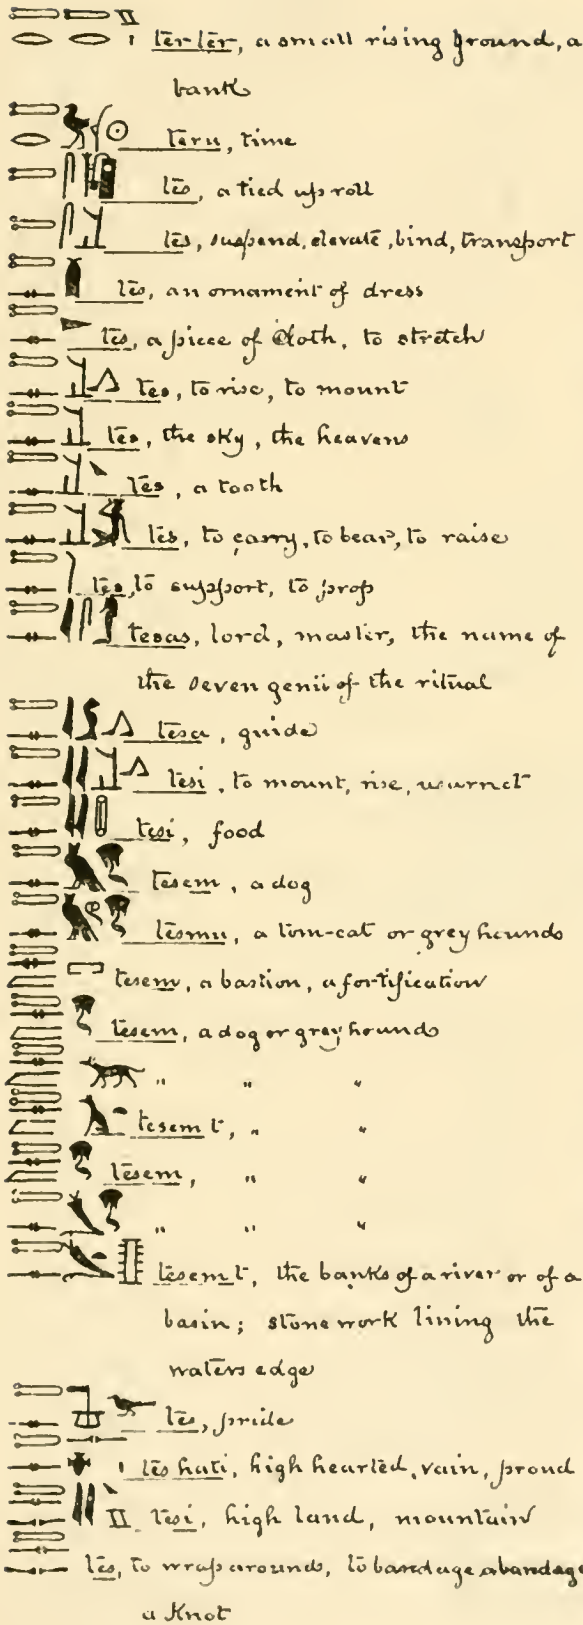 ter ter, a small rising ground, a
bank
teru, time
tes, a tied up roll
tes, suspend, elevate, bind, transport
tes, an ornament of dress
tes, a piece of cloth, to stretch
tes, to rise, to mount
tes, the sky, the heavens
tes, a tooth
tes, to carry, to bear, to raise
tes, to support, to prop
tesas, lord, master, the name of
the seven genii of the ritual
tesa, guide
tesi, to mount, rise,
tesi, food
tesem, a dog
tesmu, a tom-cat or grey hounds
tesem, a bastion, a fortification
tesem, a dog or grey hounds
" " "
tesem t, " "
tesem, " "
" " "
tesem t, the banks of a river or of a
basin; stone work lining the
waters edge
tes, pride
tes hati, high hearted, vain, proud
tesi, high land, mountain
tes, to wrap arounds, to bandage a bandage
a Knot